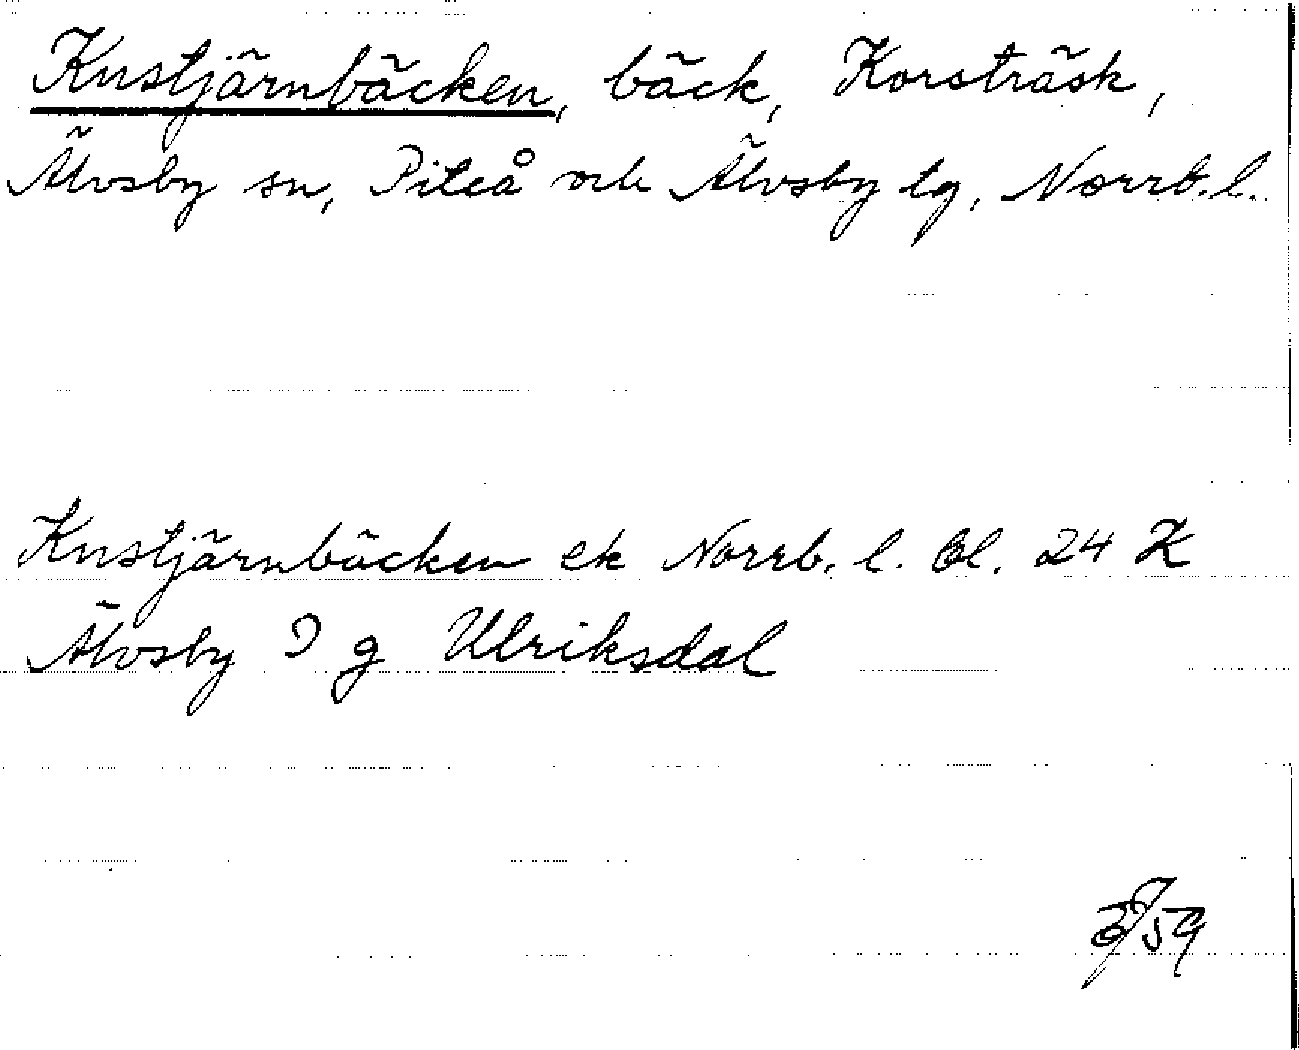 Knstjärnbäcken, bäck, Korsträsk,
Älvsby sn, Piteå och Älvsby tg, Norrb. l.
Knstjärnbäcken ek Norrb. l. Bl. 24 K
Älvsby I g Ulriksdal